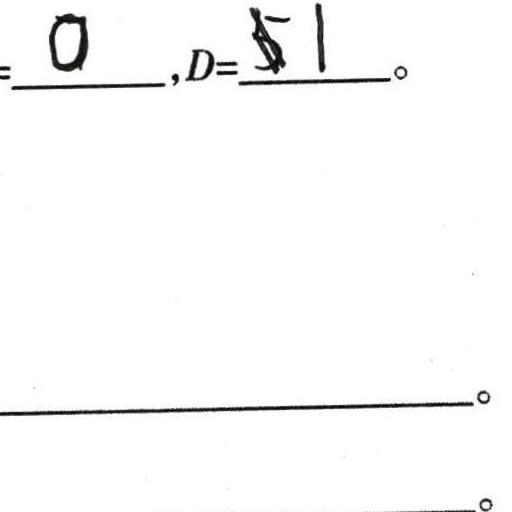 =0,D=51。
。
。